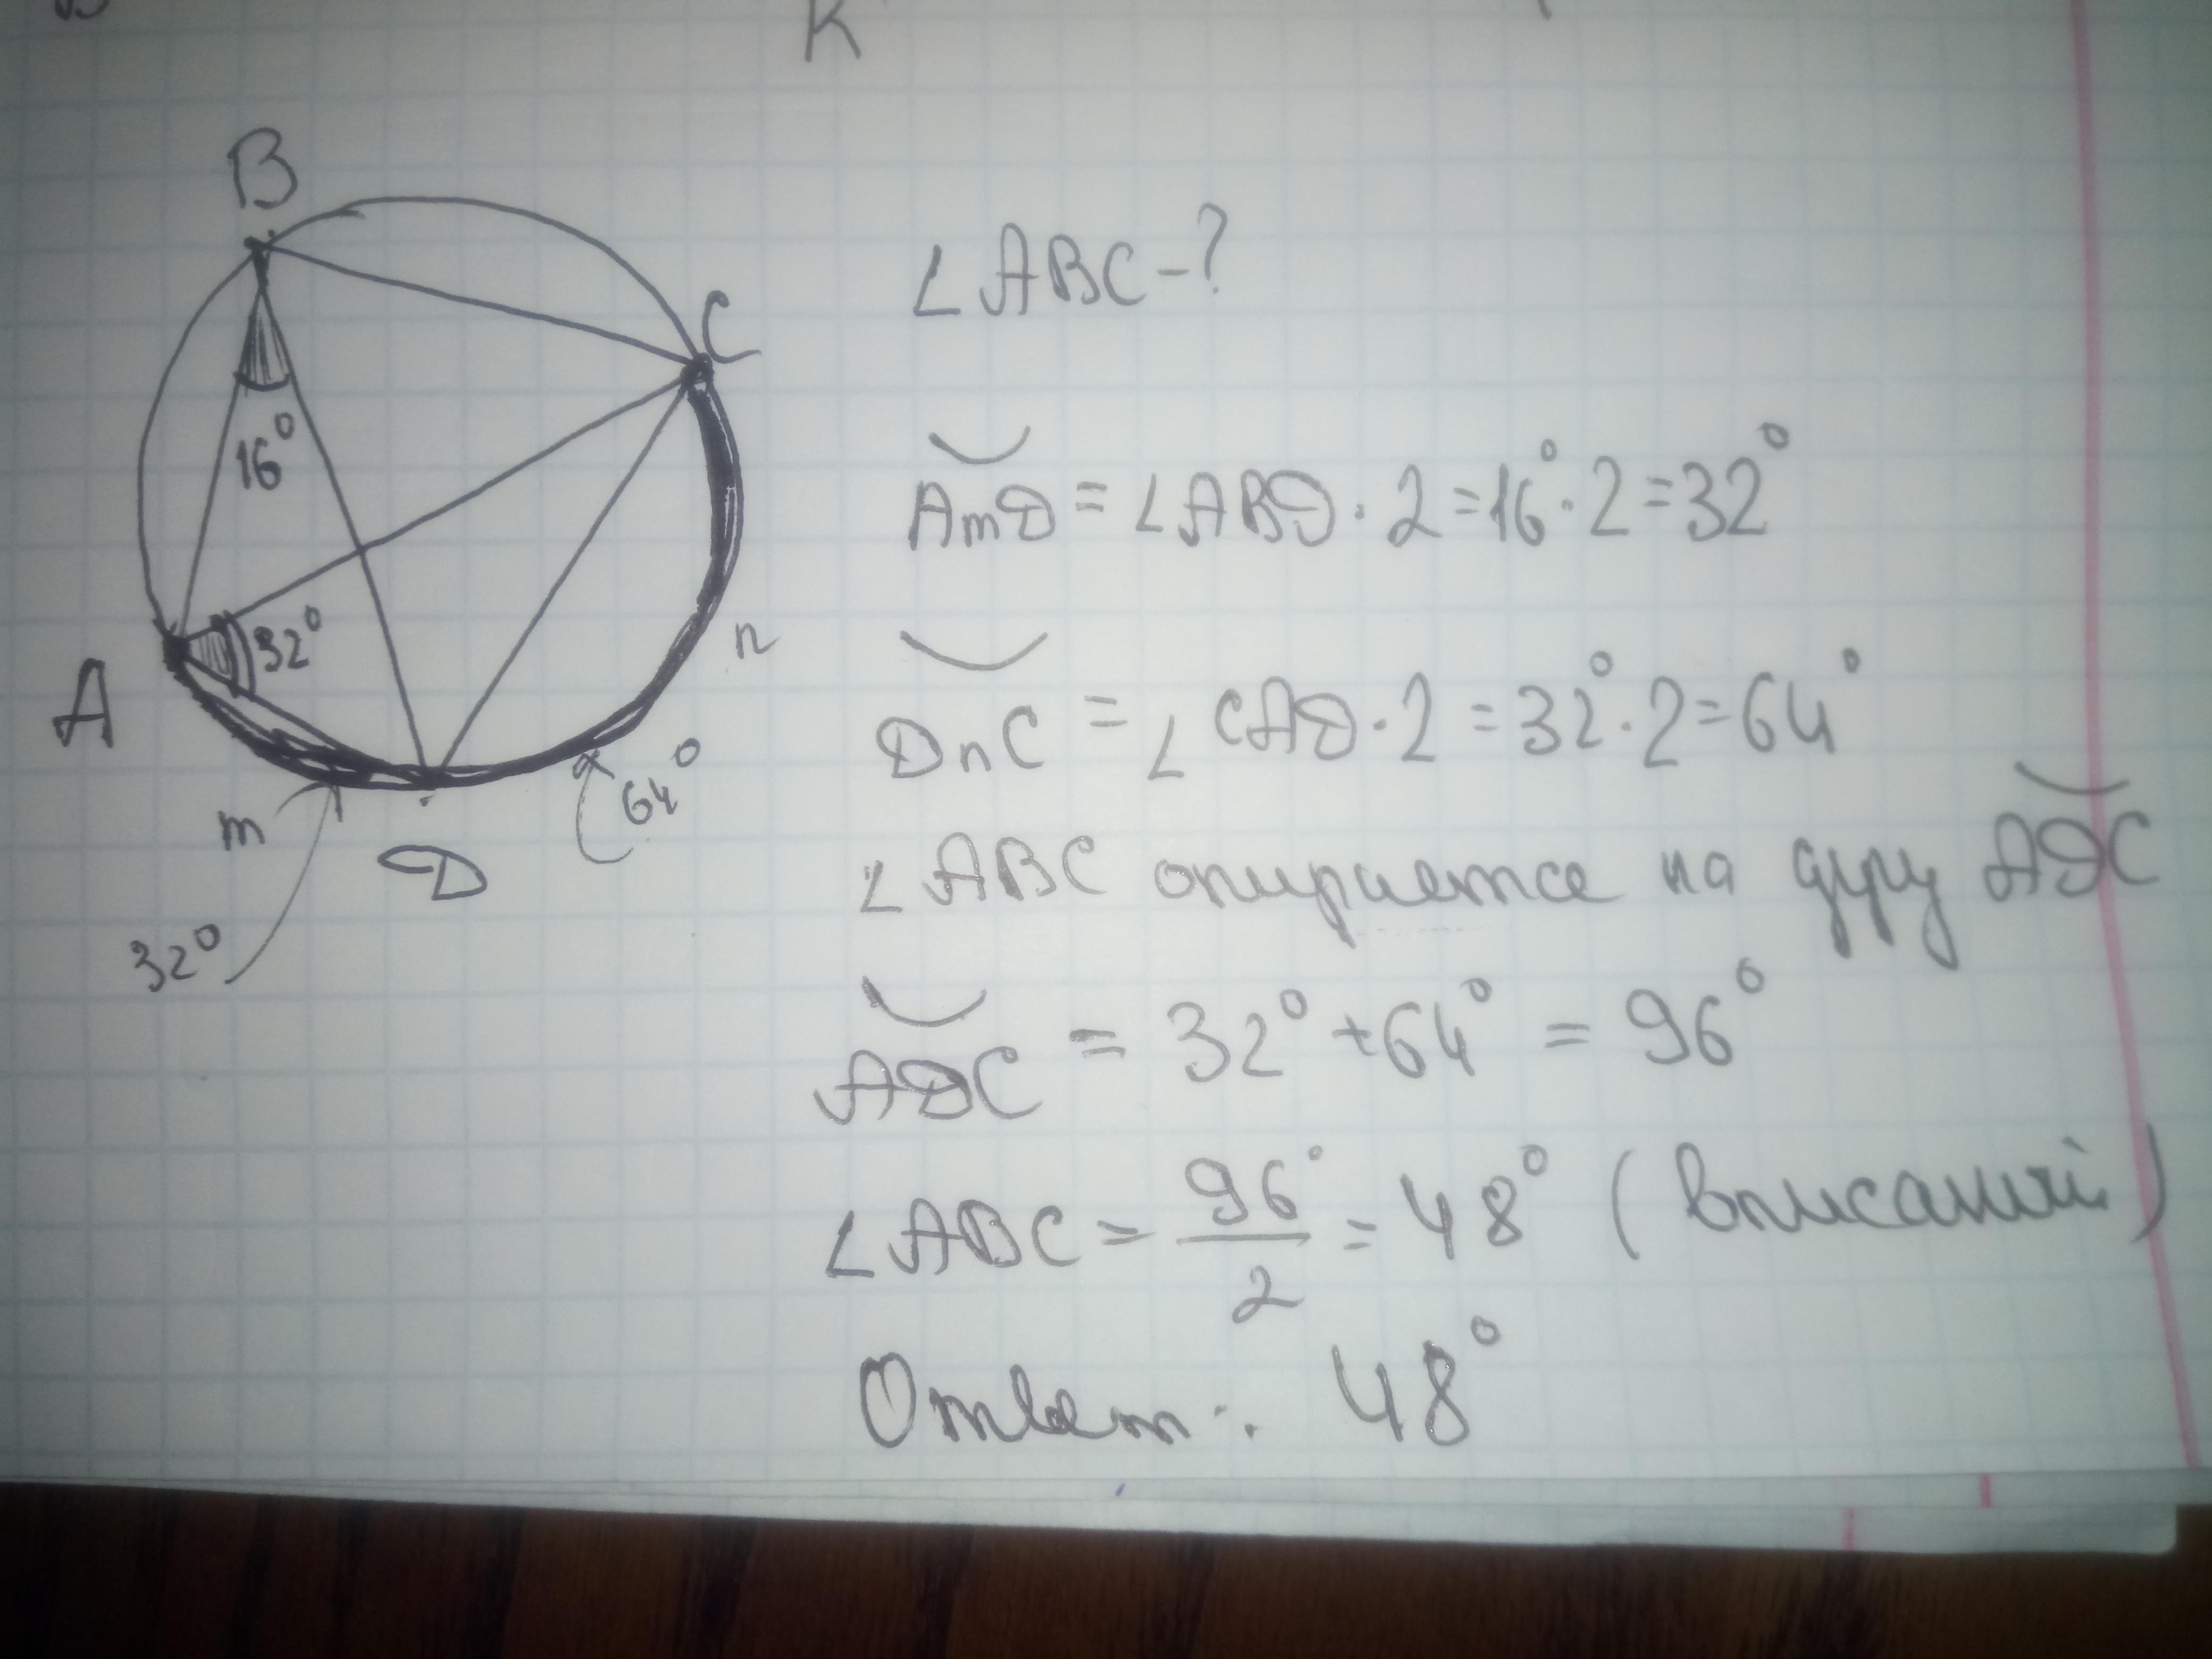 К
B
C
16°
32°
A
n
64°
m
D
32°
∠ABC-?
AmD = ∠ABD · 2 = 16° · 2 = 32°
DnC = ∠CAD · 2 = 32° · 2 = 64°
∠ABC опирается на дугу ADC
ADC = 32° + 64° = 96°
∠ABC = 96°/2 = 48° (вписаний)
Ответ: 48°